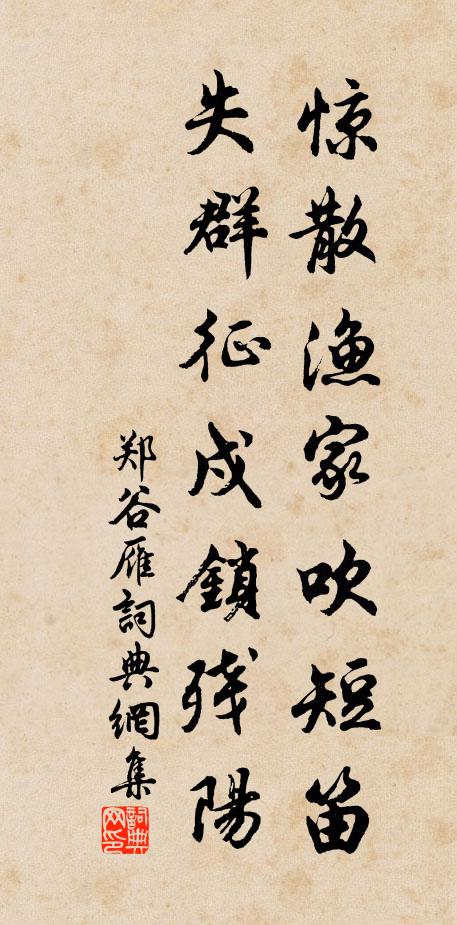 惊散渔家吹短笛
失群征戍鎖残陽
郑谷雁詞典網集
詞典网印